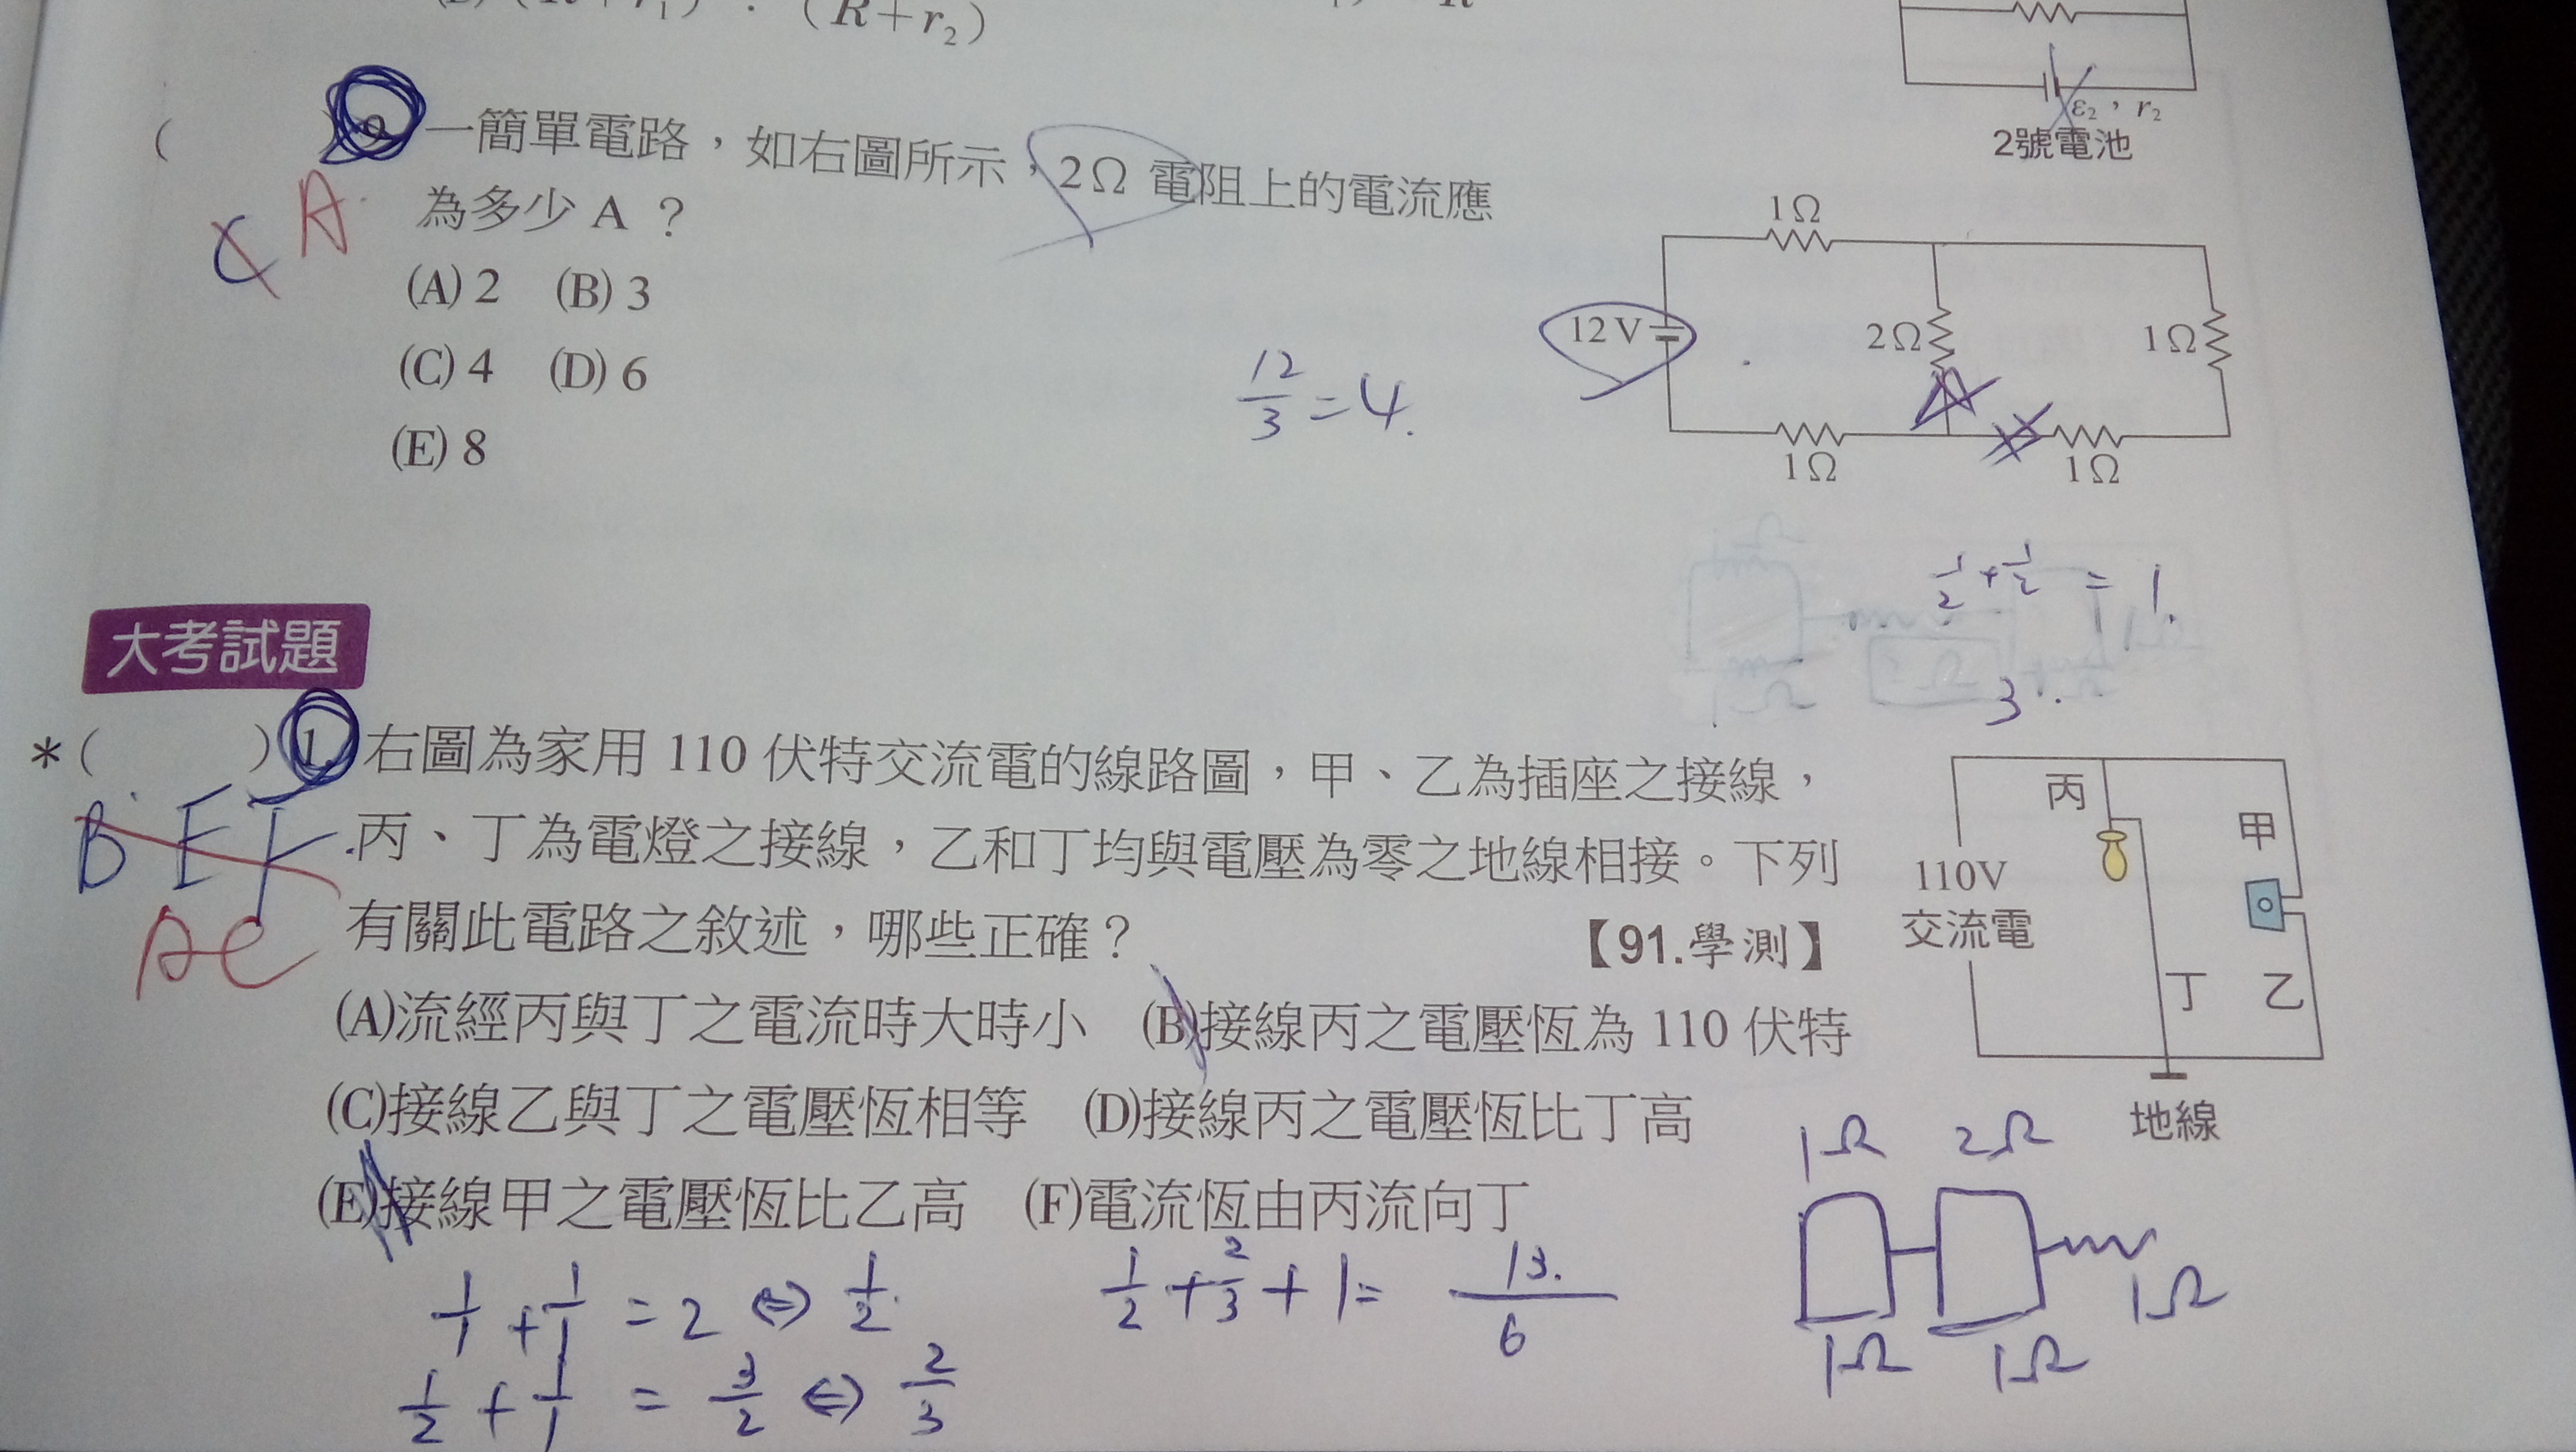 (R+r₂)
ε₂,r₂
2號電池
( ) 9. 一簡單電路,如右圖所示,2Ω 電阻上的電流應
為多少 A ?
C A
(A) 2 (B) 3
(C) 4 (D) 6
(E) 8
12/3 = 4.
1Ω
12V
2Ω
1Ω
1Ω
1Ω
1/2 + 1/2 = 1.
3
大考試題
*( ) 1. 右圖為家用 110 伏特交流電的線路圖,甲、乙為插座之接線,
丙、丁為電燈之接線,乙和丁均與電壓為零之地線相接。下列
有關此電路之敘述,哪些正確? 【91.學測】
B E F
AC
(A)流經丙與丁之電流時大時小 (B)接線丙之電壓恆為 110 伏特
(C)接線乙與丁之電壓恆相等 (D)接線丙之電壓恆比丁高
(E)接線甲之電壓恆比乙高 (F)電流恆由丙流向丁
丙
甲
110V
交流電
丁
乙
地線
1/1 + 1/1 = 2 ⇔ 1/2.
1/2 + 1/1 = 3/2 ⇔ 2/3
1/2 + 2/3 + 1 = 13./6
1Ω 2Ω
1Ω
1Ω 1Ω